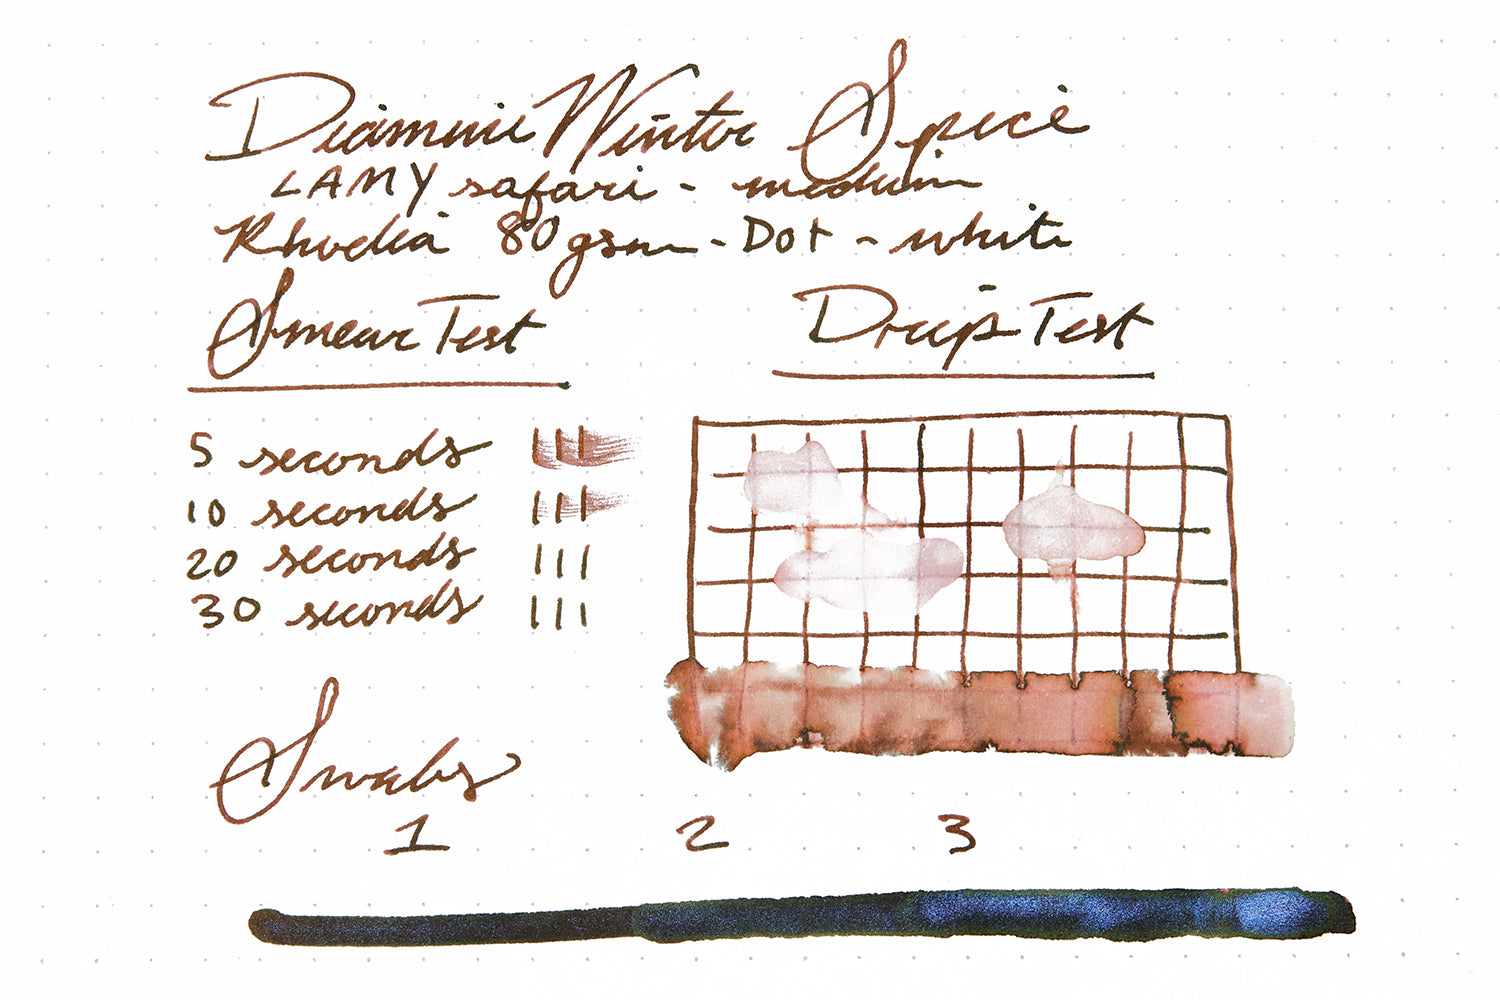 Diamine Winter Spice
LAMY safari - medium
Rhodia 80 gsm - Dot - white
Smear Test
Drip Test
5 seconds
10 seconds
20 seconds
30 seconds
Swabs
1 2 3